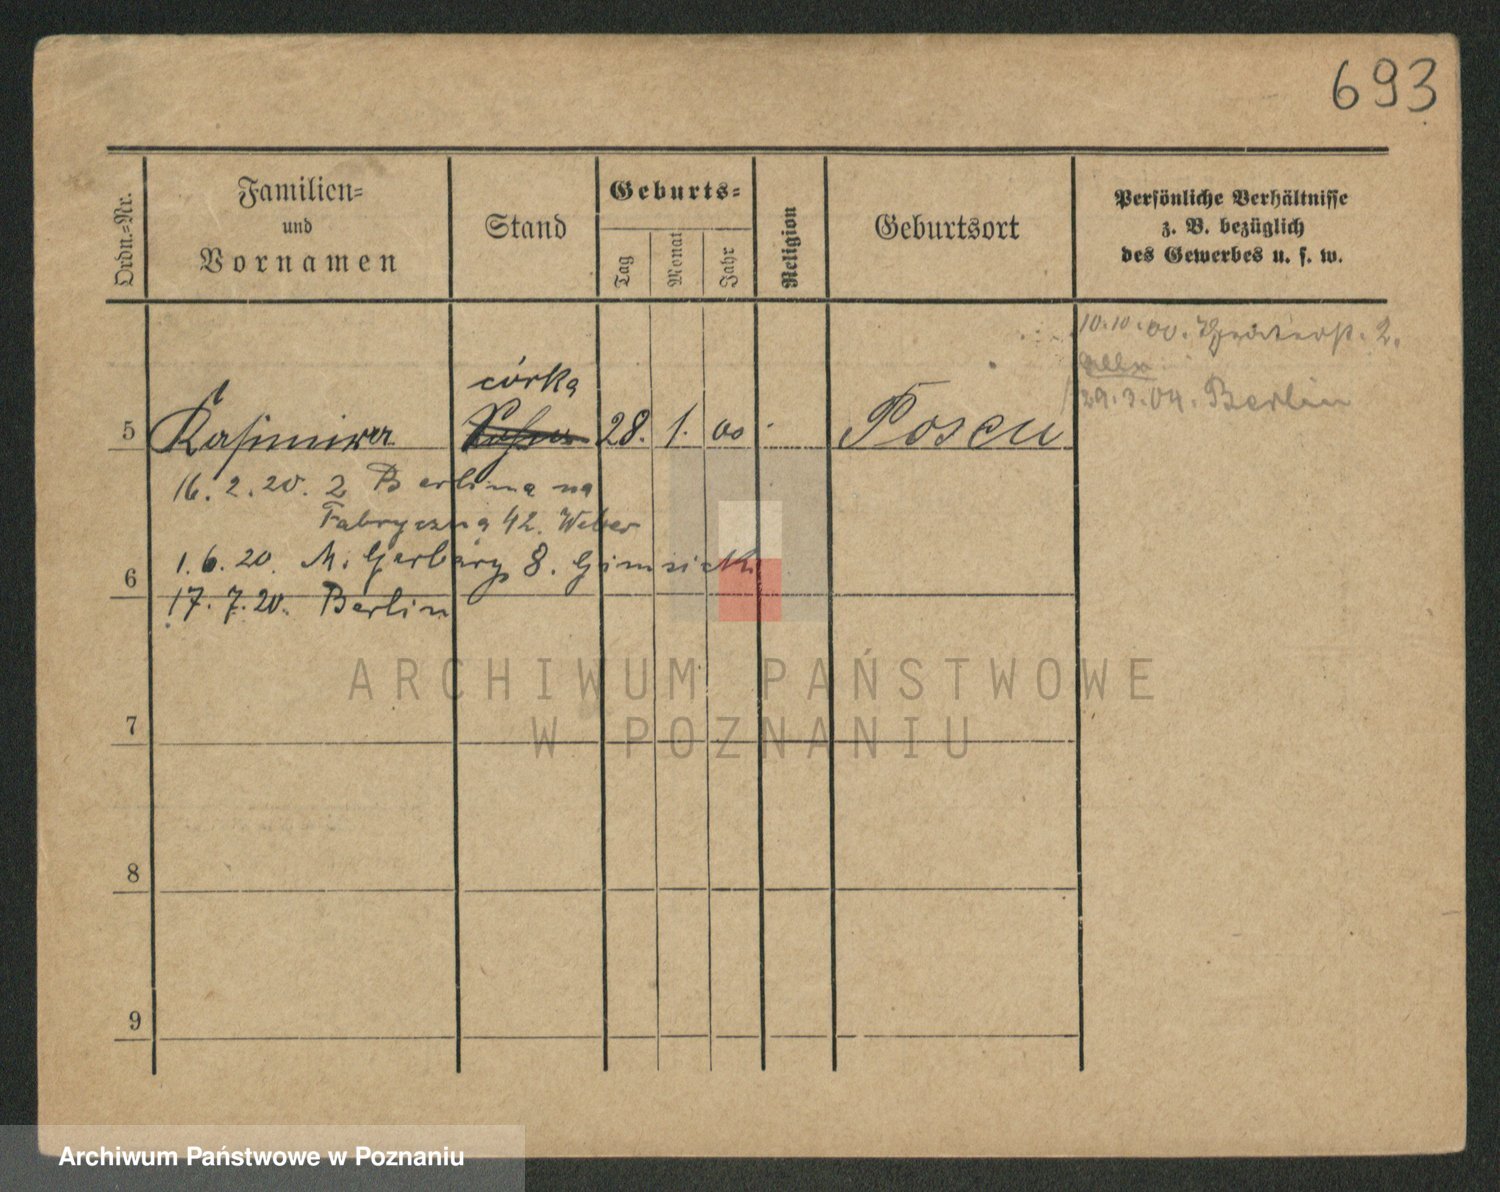 693
Ordn.=Nr.
Familien=
und
Vornamen
Stand
Geburts=
Tag
Monat
Jahr
Religion
Geburtsort
Persönliche Verhältnisse
z. B. bezüglich
des Gewerbes u. s. w.
10.10.00. 2.
29.3.04. Berlin
córka
5 Kasimira 28. 1. 00 Posen
16. 2. 20. z Berlina na
Fabryczną 42. Weber
1. 6. 20. M. Garbary 8.
6
17. 7. 20. Berlin
ARCHIWUM PAŃSTWOWE
W POZNANIU
7
8
9
Archiwum Państwowe w Poznaniu